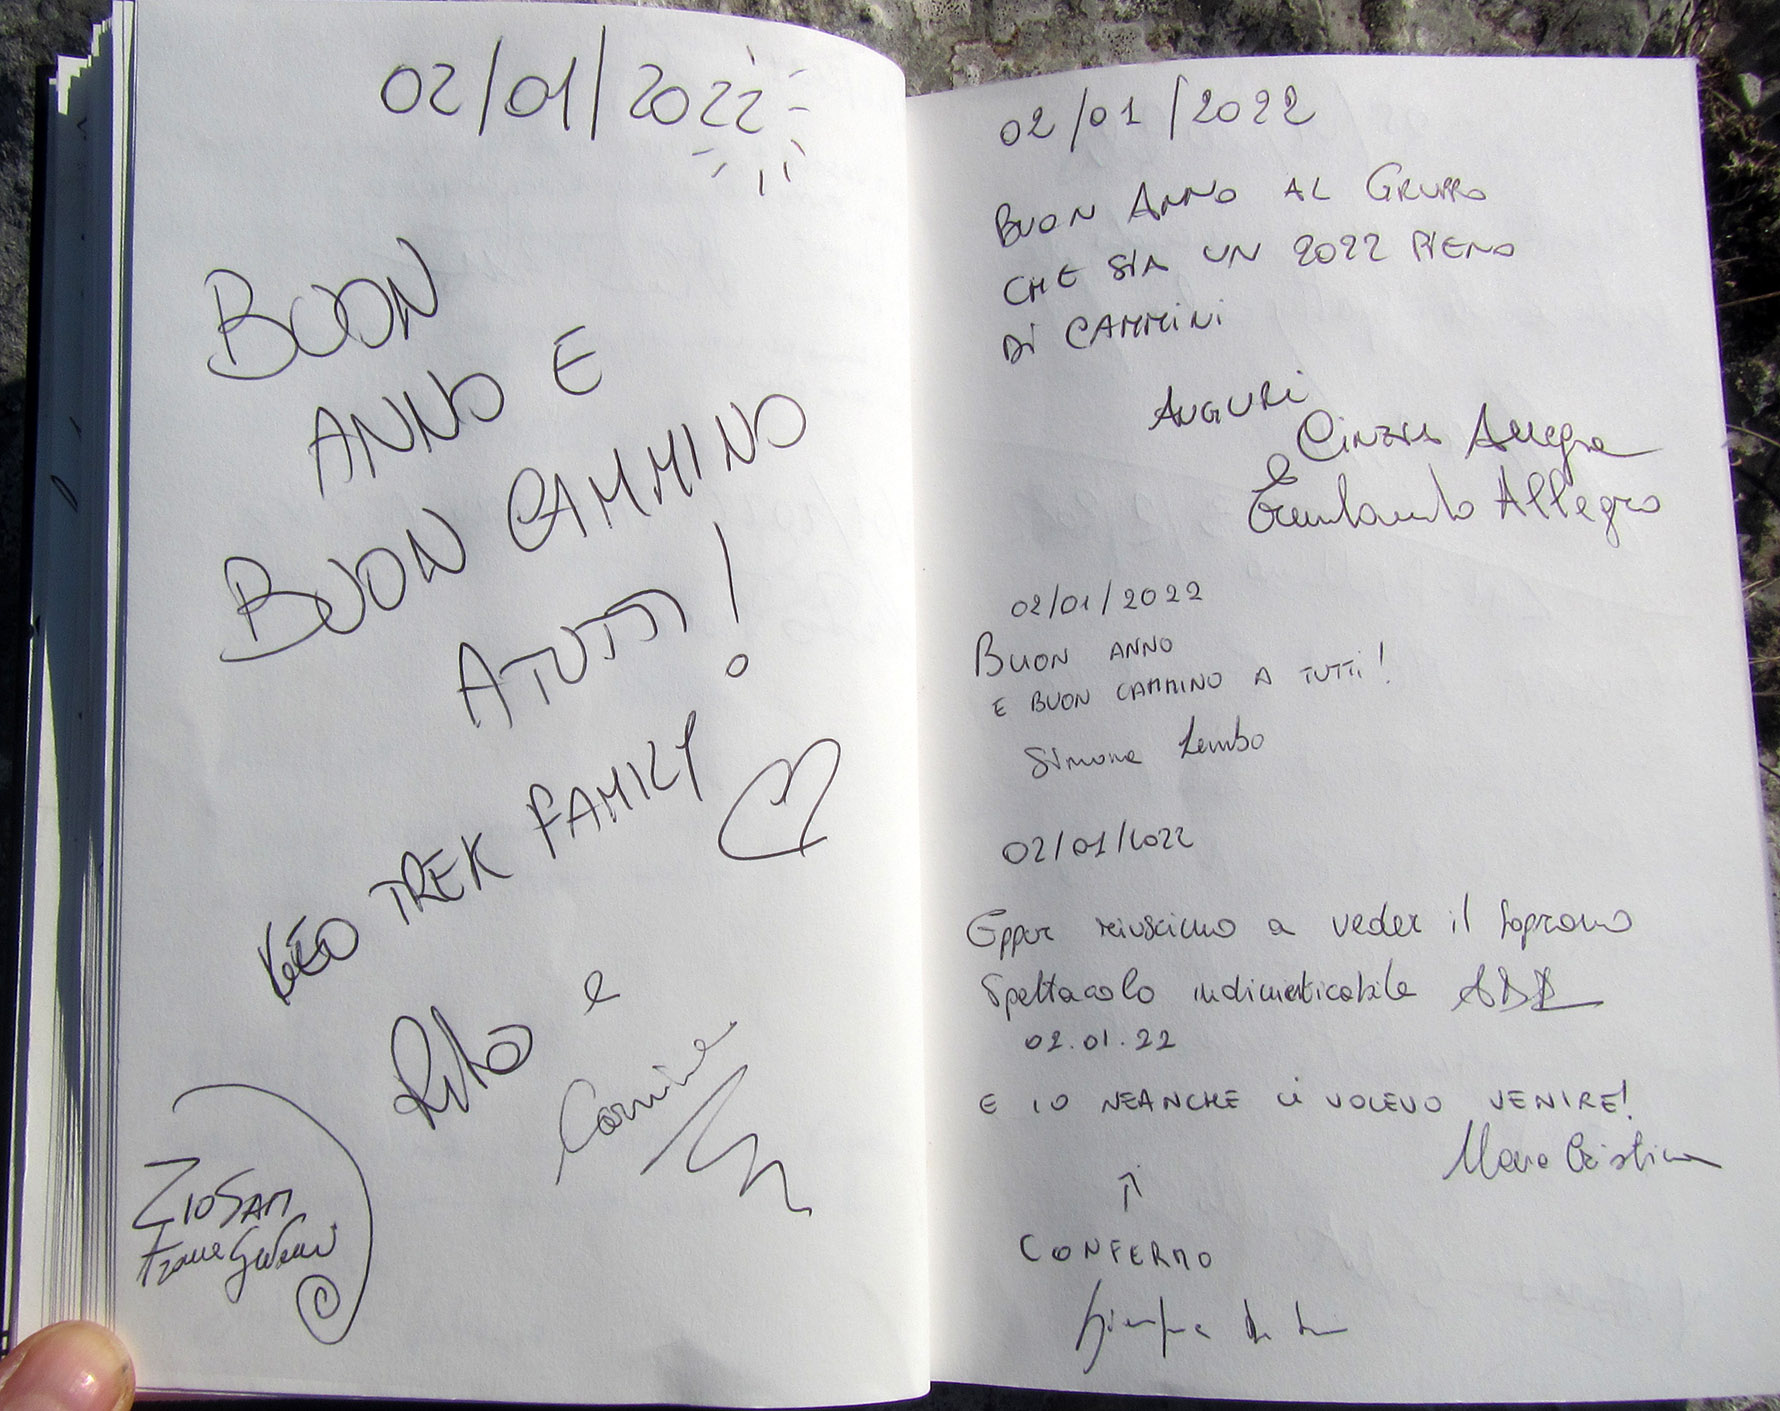 02/01/2022
BUON
ANNO E
BUON CAMMINO
A TUTTI!
TREK FAMILY
Rita e
Carmine
ZIO SAM
02/01/2022
BUON ANNO AL GRUPPO
CHE SIA UN 2022 PIENO
DI CAMMINI
AUGURI
Cinzia Allegra
e
Allegro
02/01/2022
BUON ANNO
E BUON CAMMINO A TUTTI!
Simona Lembo
02/01/2022
Eppur riuscimo a veder il Soprano
Spettacolo indimenticabile
02.01.22
E IO NEANCHE CI VOLEVO VENIRE!
Maria Cristina
↑
CONFERMO